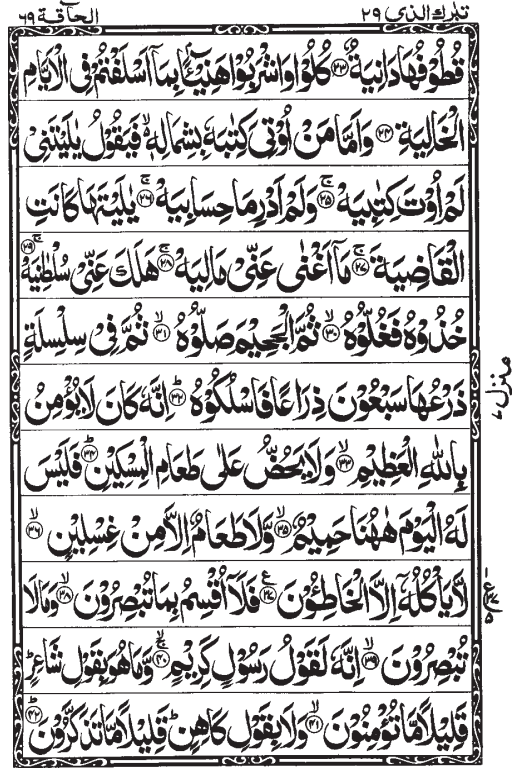 تبٰرك الذي ٢٩ الحآقة ٦٩
قُطُوْفُهَا دَانِيَةٌ ﴿٢٣﴾ كُلُوْا وَاشْرَبُوْا هَنِيْٓـًٔۢا بِمَاۤ اَسْلَفْتُمْ فِى الْاَيَّامِ
الْخَالِيَةِ ﴿٢٤﴾ وَاَمَّا مَنْ اُوْتِىَ كِتٰبَهٗ بِشِمَالِهٖ ۙ فَيَقُوْلُ يٰلَيْتَنِىْ
لَمْ اُوْتَ كِتٰبِيَهْ ۚ﴿٢٥﴾ وَلَمْ اَدْرِ مَا حِسَابِيَهْ ۚ﴿٢٦﴾ يٰلَيْتَهَا كَانَتِ
الْقَاضِيَةَ ۚ﴿٢٧﴾ مَاۤ اَغْنٰى عَنِّىْ مَالِيَهْ ۚ﴿٢٨﴾ هَلَكَ عَنِّىْ سُلْطٰنِيَهْ ۚ﴿٢٩﴾
خُذُوْهُ فَغُلُّوْهُ ۙ﴿٣٠﴾ ثُمَّ الْجَحِيْمَ صَلُّوْهُ ۙ﴿٣١﴾ ثُمَّ فِىْ سِلْسِلَةٍ
ذَرْعُهَا سَبْعُوْنَ ذِرَاعًا فَاسْلُكُوْهُ ؕ﴿٣٢﴾ اِنَّهٗ كَانَ لَا يُؤْمِنُ
بِاللّٰهِ الْعَظِيْمِ ۙ﴿٣٣﴾ وَلَا يَحُضُّ عَلٰى طَعَامِ الْمِسْكِيْنِ ؕ﴿٣٤﴾ فَلَيْسَ
لَهُ الْيَوْمَ هٰهُنَا حَمِيْمٌ ۙ﴿٣٥﴾ وَّلَا طَعَامٌ اِلَّا مِنْ غِسْلِيْنٍ ۙ﴿٣٦﴾
لَّا يَاْكُلُهٗۤ اِلَّا الْخَاطِـُٔوْنَ ﴿٣٧﴾ فَلَاۤ اُقْسِمُ بِمَا تُبْصِرُوْنَ ۙ﴿٣٨﴾ وَمَا لَا
تُبْصِرُوْنَ ۙ﴿٣٩﴾ اِنَّهٗ لَقَوْلُ رَسُوْلٍ كَرِيْمٍ ۚۙ﴿٤٠﴾ وَّمَا هُوَ بِقَوْلِ شَاعِرٍ ؕ
قَلِيْلًا مَّا تُؤْمِنُوْنَ ۙ﴿٤١﴾ وَلَا بِقَوْلِ كَاهِنٍ ؕ قَلِيْلًا مَّا تَذَكَّرُوْنَ ؕ﴿٤٢﴾
منزل ٧